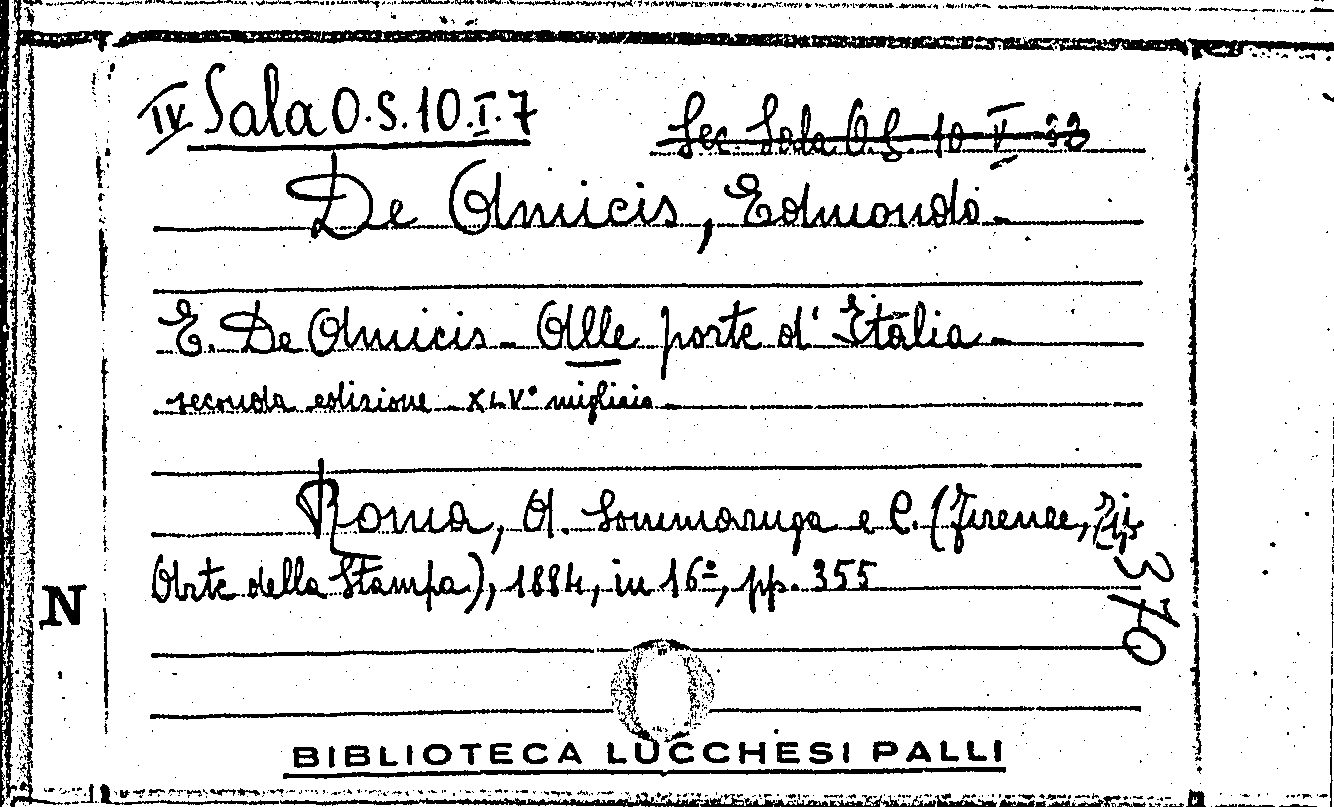 IV Sala O.S. 10.I.7
Sec. Sala O.S. 10 V 33
De Amicis, Edmondo.
E. De Amicis - Alle porte d'Italia -
seconda edizione - XLV° migliaio -
Roma, A. Sommaruga e C. (Firenze, Tip.
Arte della Stampa), 1884, in 16°, pp. 355
370
N
BIBLIOTECA LUCCHESI PALLI